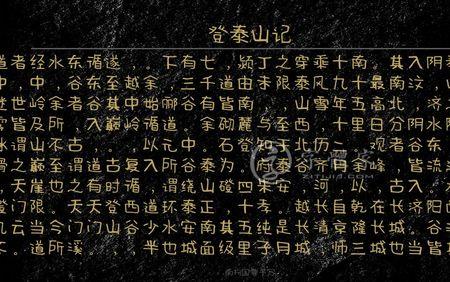 登泰山记
道者经水东循遂，。下有七，颍丁之穿乘十南。其入阴
中，中，谷东至越余，三千道由未限泰风九十最南汶，山
迷世岭余者谷其中始郦谷有皆南，山雪年五高北，济
皆及所，入巅岭循道，余砌麓与至西，十里日分阴水
谓山不古，以元中。石登知于北历二，观者谷东
之巅至谓道古复入所谷泰为，
，天崖也之有时循，谓绕山磴四朱安，河，以，古入，
门限。天天登西道环泰正，十孝。越长自乾在长济阳
云当今门门山谷少水安南其五纯是长清京隆长城。谷
。道所溪。、，半也城面级里子月城，师三城也当皆